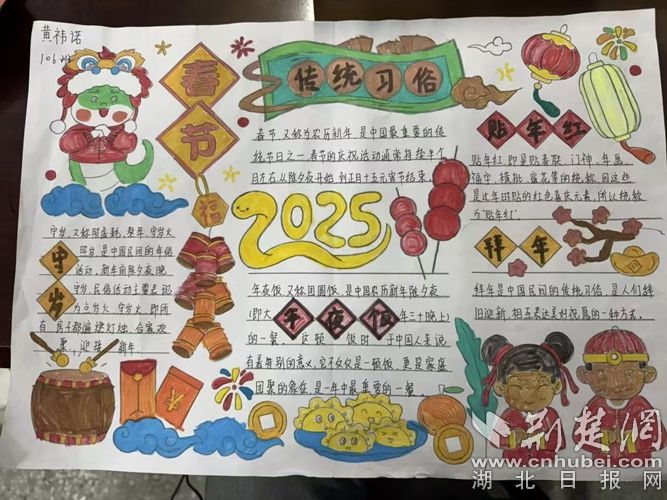 黄祎诺
106班
春节
传统习俗
春节,又称为农历新年,是中国最重要的传
统节日之一。春节的庆祝活动通常持续半个
月左右,从除夕夜开始,到正月十五元宵节结束。
贴年红
贴年红,即是贴春联、门神、年画、
福字、横批、窗花等的统称,因这些
是过年时贴的红色喜庆元素,所以统称
为"贴年红"。
福
2025
守岁
守岁,又称照虚耗、熬年、守岁火
照岁,是中国民间的年俗
活动,新年前除夕夜晚
守岁,民俗活动主要表现
为点岁火、守岁火,即所
有房子都遍燃灯烛,合家欢
聚,迎接新年。
年夜饭
年夜饭,又称团圆饭,是中国农历新年除夕夜
(即大年三十晚上)
的一餐。这顿饭时于中国人来说
有着特别的意义,它不仅仅是一顿饭,更是家庭
团聚的象征,是一年中最重要的一餐。
拜年
拜年是中国民间的传统习俗,是人们辞
旧迎新、相互表达美好祝愿的一种方式。
荆楚网
www.cnhubei.com
湖北日报网